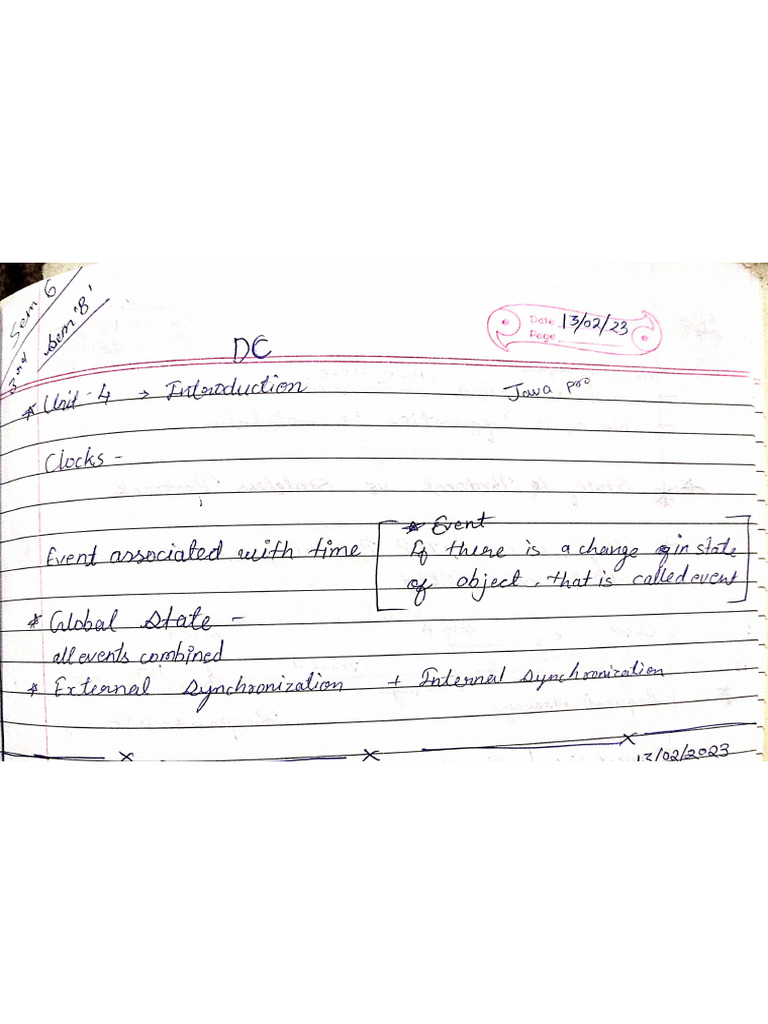 Sem 6
3rd Sem 'B'
Date 13/02/23
Page
DC
* Unit - 4 → Introduction
Java pro
Clocks -
* Event
Event associated with time
If there is a change in state
of object, that is called event
* Global State -
all events combined
* External Synchronization + Internal Synchronization
13/02/2023